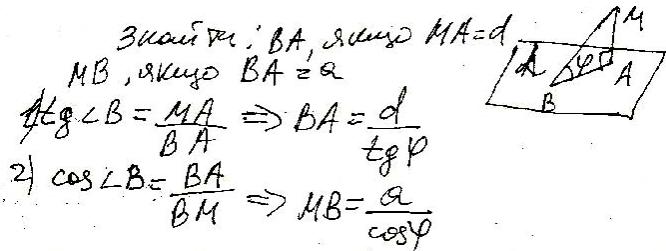 Знайти: BA, якщо MA=d
MB, якщо BA=a
1) tg∠B = MA/BA => BA = d/tgφ
2) cos∠B = BA/BM => MB = a/cosφ
M
α
φ
A
B